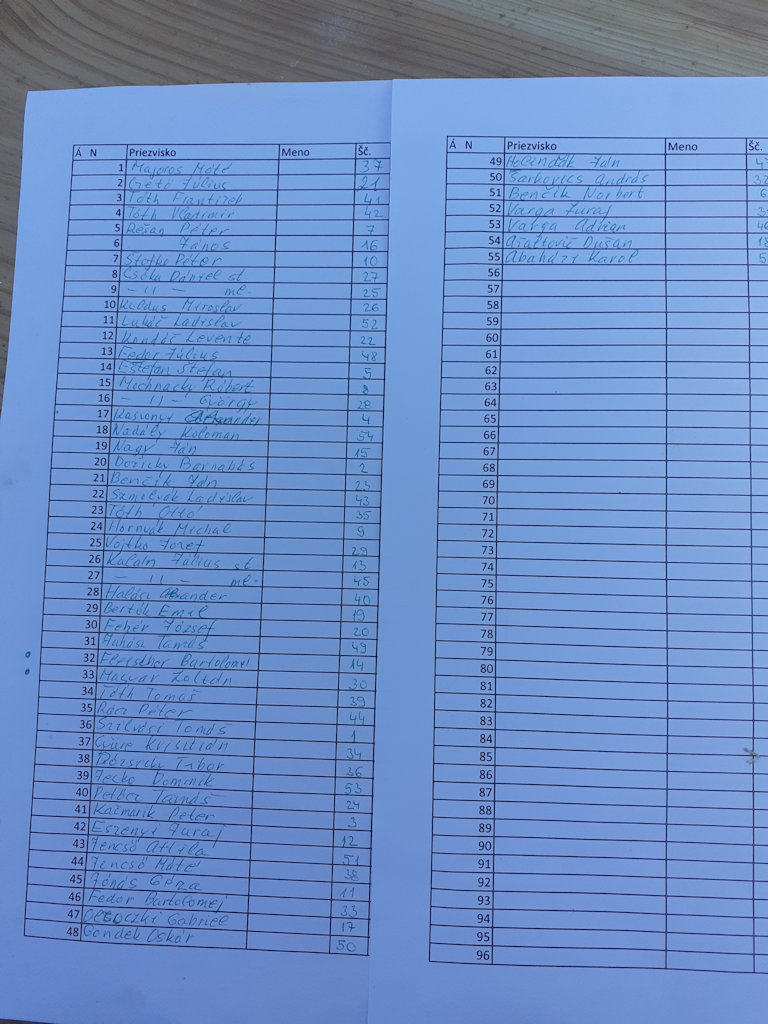 Á N Priezvisko Meno Šč.
1 Majoros Máté 37
2 Gétó Július 21
3 Tóth František 41
4 Tóth Vladimír 42
5 Rešan Péter 7
6 János 16
7 Štofko Péter 10
8 Csóka Dániel st 27
9 – 11 – ml. 25
10 Koldus Miroslav 26
11 Lukáč Ladislav 52
12 Kondáš Levente 22
13 Fedor Július 48
14 Eštefan Štefan 5
15 Mochnacky Róbert 8
16 – 11 – György 28
17 Kasvonyi 4
18 Nadály Koloman 54
19 Nagy Ján 15
20 Dozicky Barnabás 2
21 Benčik Ján 23
22 Szmolyák Ladislav 43
23 Tóth Ottó 35
24 Hornyák Michal 9
25 Vojtko Jozef 29
26 Július st 13
27 – 11 – ml. 45
28 Halász 40
29 Bertók Emil 19
30 Fehér József 20
31 Juhász Tamás 49
32 Bartolomej 14
33 Magyar Zoltán 30
34 Tóth Tomáš 39
35 Rácz Péter 44
36 Szilvási Tomáš 1
37 Krisztián 34
38 Tibor 36
39 Jecko Dominik 53
40 Tamáš 24
41 Kažmarik Péter 3
42 Eszenyi Juraj 12
43 Jencsó Attila 51
44 Jencsó Máté 38
45 Jónás Géza 11
46 Fedor Bartolomej 33
47 Gabriel 17
48 Gondek Oskár 50
Á N Priezvisko Meno Šč.
49 Holendák Ján
50 Šarkovics András
51 Benčik Norbert
52 Varga Juraj
53 Varga Adrian
54 Dušan
55 Abaházi Karol
56
57
58
59
60
61
62
63
64
65
66
67
68
69
70
71
72
73
74
75
76
77
78
79
80
81
82
83
84
85
86
87
88
89
90
91
92
93
94
95
96